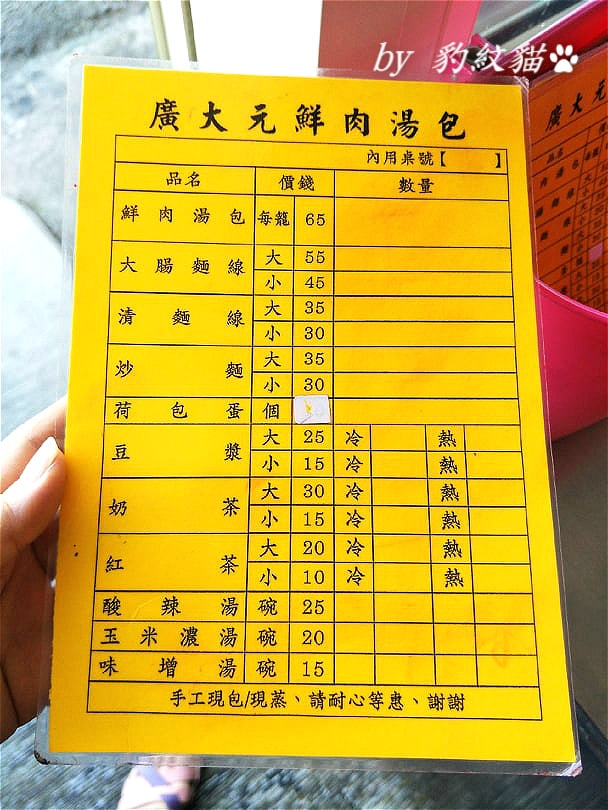 by 豹紋貓
廣大元鮮肉湯包
內用桌號【 】
品名 價錢 數量
鮮肉湯包 每籠 65
大腸麵線 大 55
小 45
清麵線 大 35
小 30
炒麵 大 35
小 30
荷包蛋 個
豆漿 大 25 冷 熱
小 15 冷 熱
奶茶 大 30 冷 熱
小 15 冷 熱
紅茶 大 20 冷 熱
小 10 冷 熱
酸辣湯 碗 25
玉米濃湯 碗 20
味增湯 碗 15
手工現包/現蒸、請耐心等惠、謝謝
廣大元